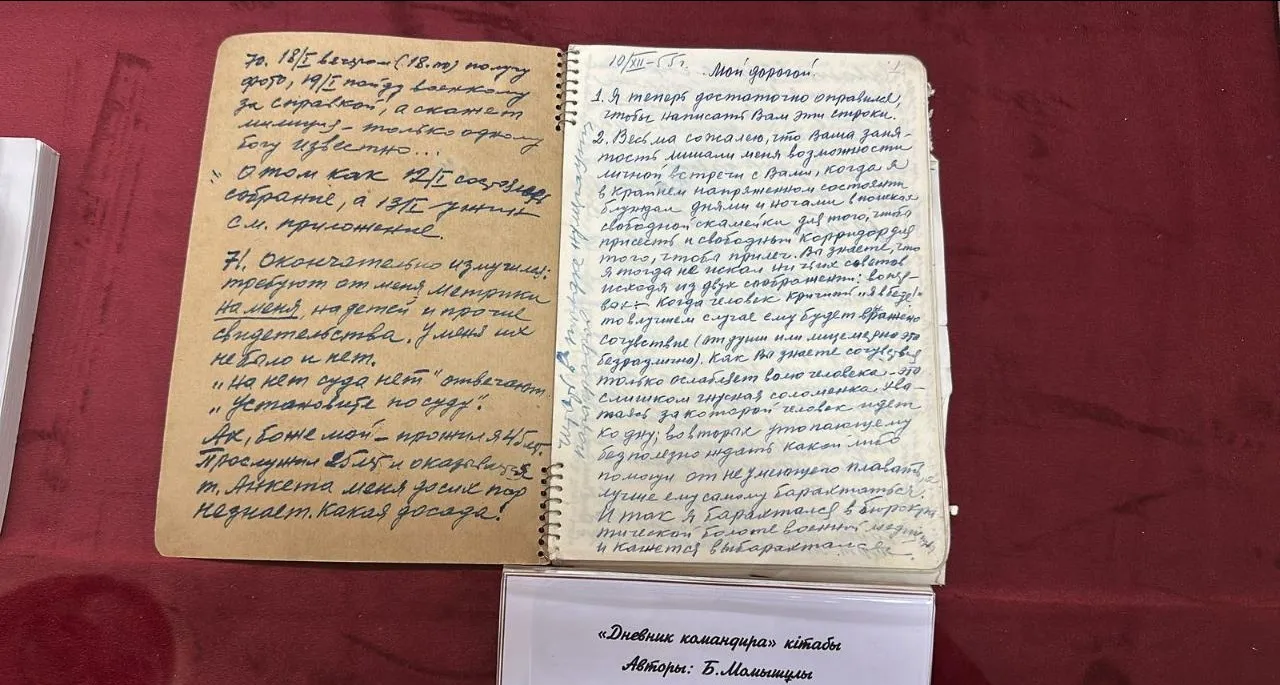 70. 18/I вечером (18.00) получу
фото, 19/I пойду военкому
за справкой, а скажет
милиция – только одному
богу известно...
О том как 12/I состоялось
собрание, а 13/I
см. приложение.
71. Окончательно измучился:
требуют от меня метрики
на меня, на детей и прочие
свидетельства. У меня их
не было и нет.
„На нет суда нет" отвечают
„Установите по суду".
Ах, боже мой – прожил я 45 лет.
Прослужил 25 лет и оказывается
т. Анкета меня до сих пор
не знает. Какая досада!
10/XII-55г.
1.
Мой дорогой.
1. Я теперь достаточно оправился,
чтобы написать Вам эти строки.
2. Весьма сожалею, что Ваша заня-
тость лишали меня возможности
личной встречи с Вами, когда я
в крайнем напряженном состоянии
блуждал днями и ночами в поисках
свободной скамейки для того, чтоб
присесть и свободный корридор для
того, чтоба прилеч. Вы знаете, что
я тогда не искал ни чьих советов
исходя из двух соображений: во пер-
вых – когда человек кричит „я в беде!"
то в лучшем случае ему будет выражено
сочувствие (от души или лицемерно это
безразлично). Как Вы знаете сочувствия
только ослабляет волю человека – это
слишком гнусная соломенка. хва-
таясь за которой человек идет
ко дну; во вторых утопающему
бесполезно ждать какой либо
помощи от не умеющего плавать
лучше ему самому барахтаться.
И так я барахтался в бюрокра
тической болоте военной
и кажется выбарахтался.
«Дневник командира» кітабы
Авторы: Б.Момышұлы